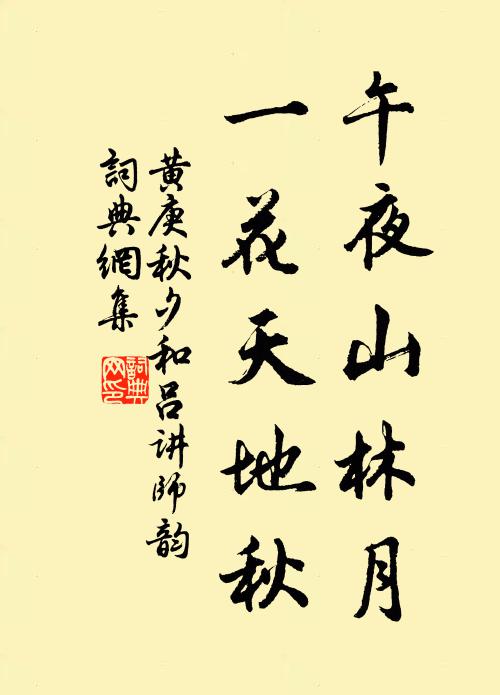 午夜山林月
一花天地秋
黄庚秋夕和吕讲师韵
詞典網集
詞典网印